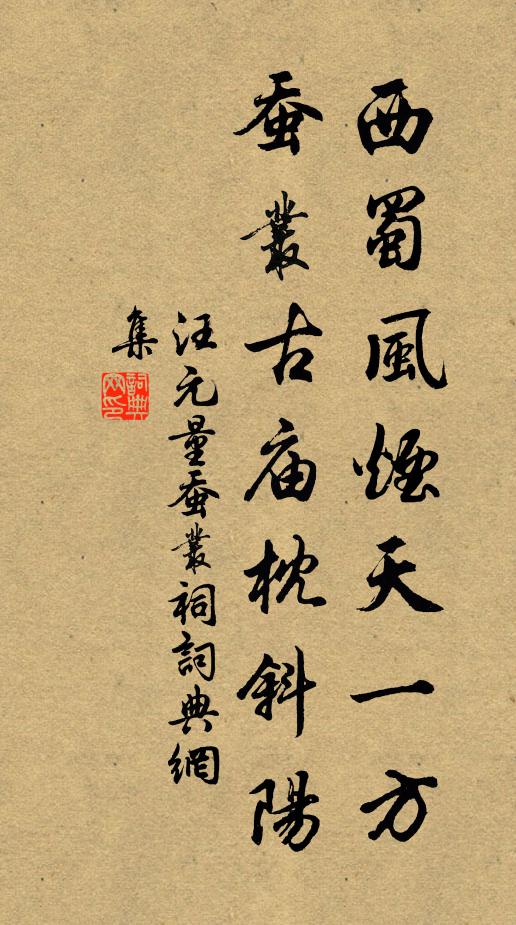 西蜀風煙天一方
蚕叢古庙枕斜陽
汪元量蚕叢祠詞典網
集
詞典網印